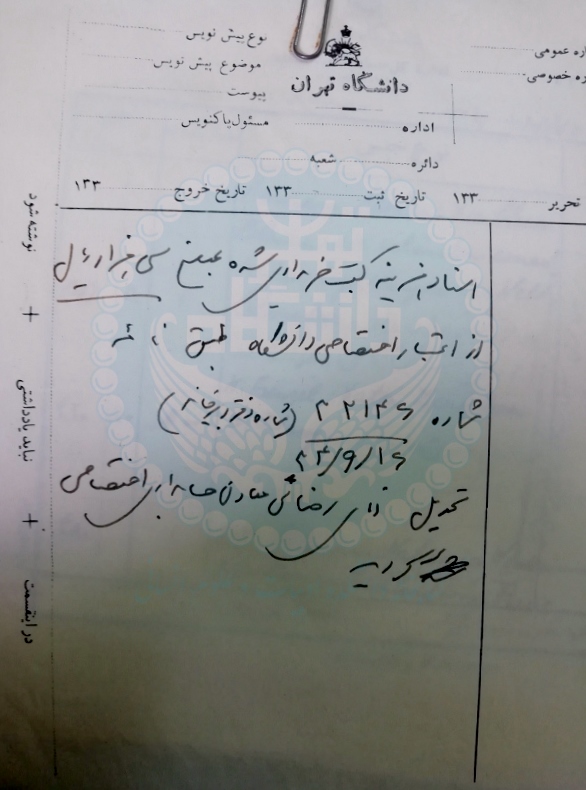 نوع پیش نویس
موضوع پیش نویس
پیوست
مسئول پاکنویس
دانشگاه تهران
اداره
دائره شعبه
ره عمومی
ره خصوصی
تحریر ۱۳۳ تاریخ ثبت ۱۳۳ تاریخ خروج ۱۳۳
اسناد هزینه کتب خریداری شده بمبلغ سی هزار ریال
از اعتبار اختصاصی دانشگاه طبق نامه
شماره ۲۲۱۴۶ (شماره دفتر دبیرخانه)
۲۴/۹/۱۶
تحویل آقای رضائی معاون حسابداری اختصاصی
گردید
نوشته شود + نباید یادداشتی + در اینقسمت